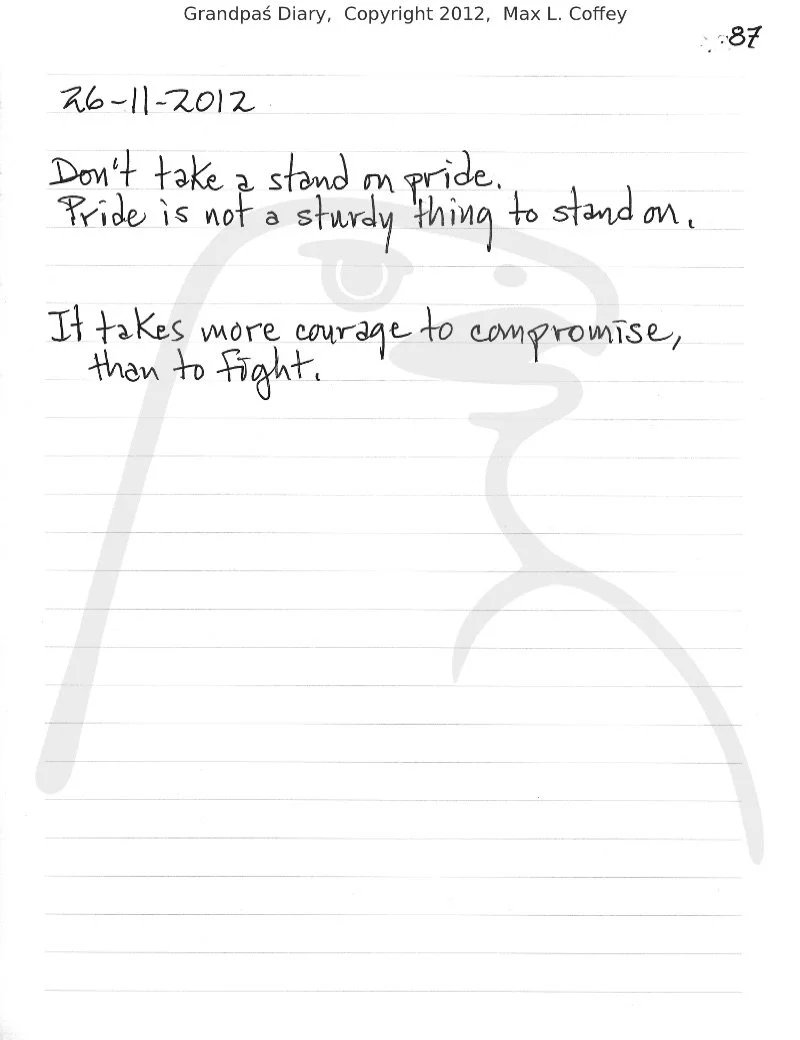 Grandpaś Diary, Copyright 2012, Max L. Coffey
87
26-11-2012
Don't take a stand on pride.
Pride is not a sturdy thing to stand on.
It takes more courage to compromise,
than to fight.